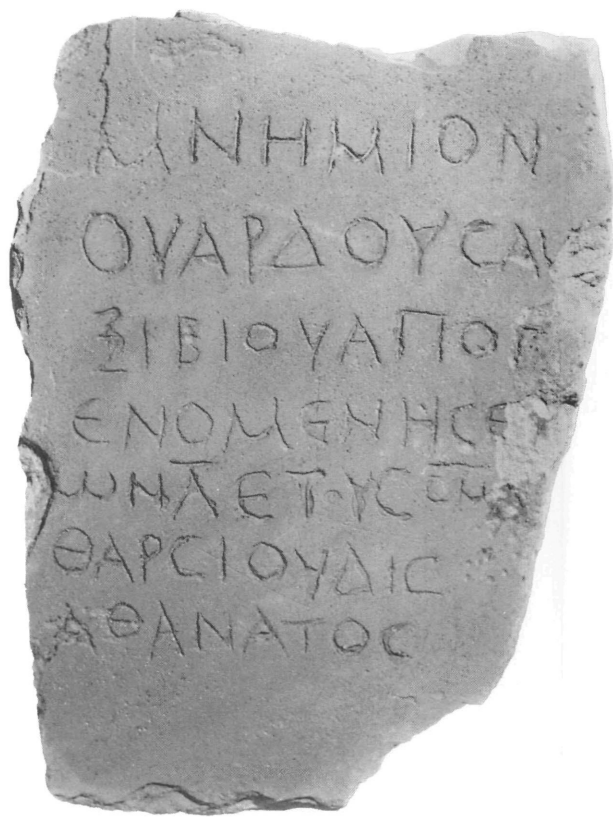 ΜΝΗΜΙΟΝ
ΟΥΑΡΔΟΥϹΑΥ
ΞΙΒΙΟΥΑΠΟΓ
ΕΝΟΜΕΝΗϹΕΤ
ΩΝΛΕΤΟΥϹ
ΘΑΡϹΙΟΥΔΙϹ
ΑΘΑΝΑΤΟϹ